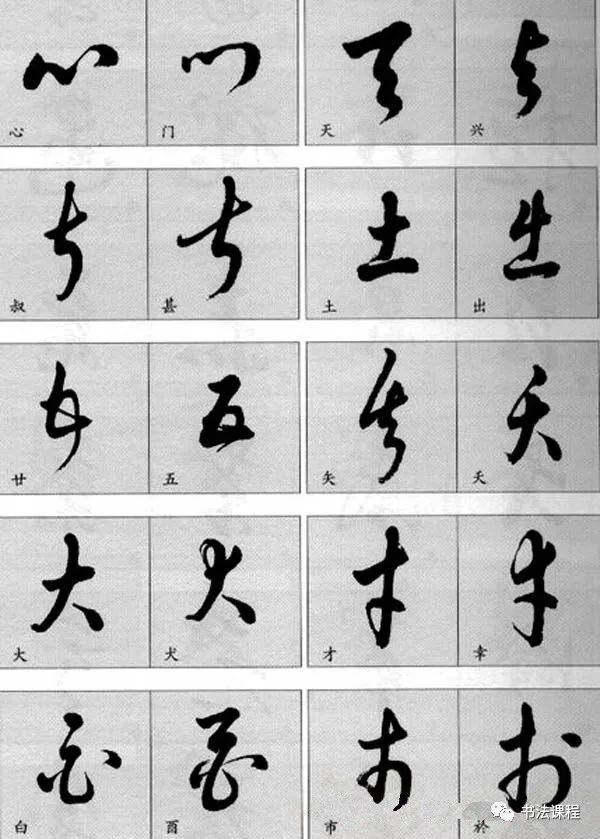 心 门 天 兴
叔 甚 土 出
廿 五 矢 夭
大 犬 才 幸
白 酉 市 於
书法课程